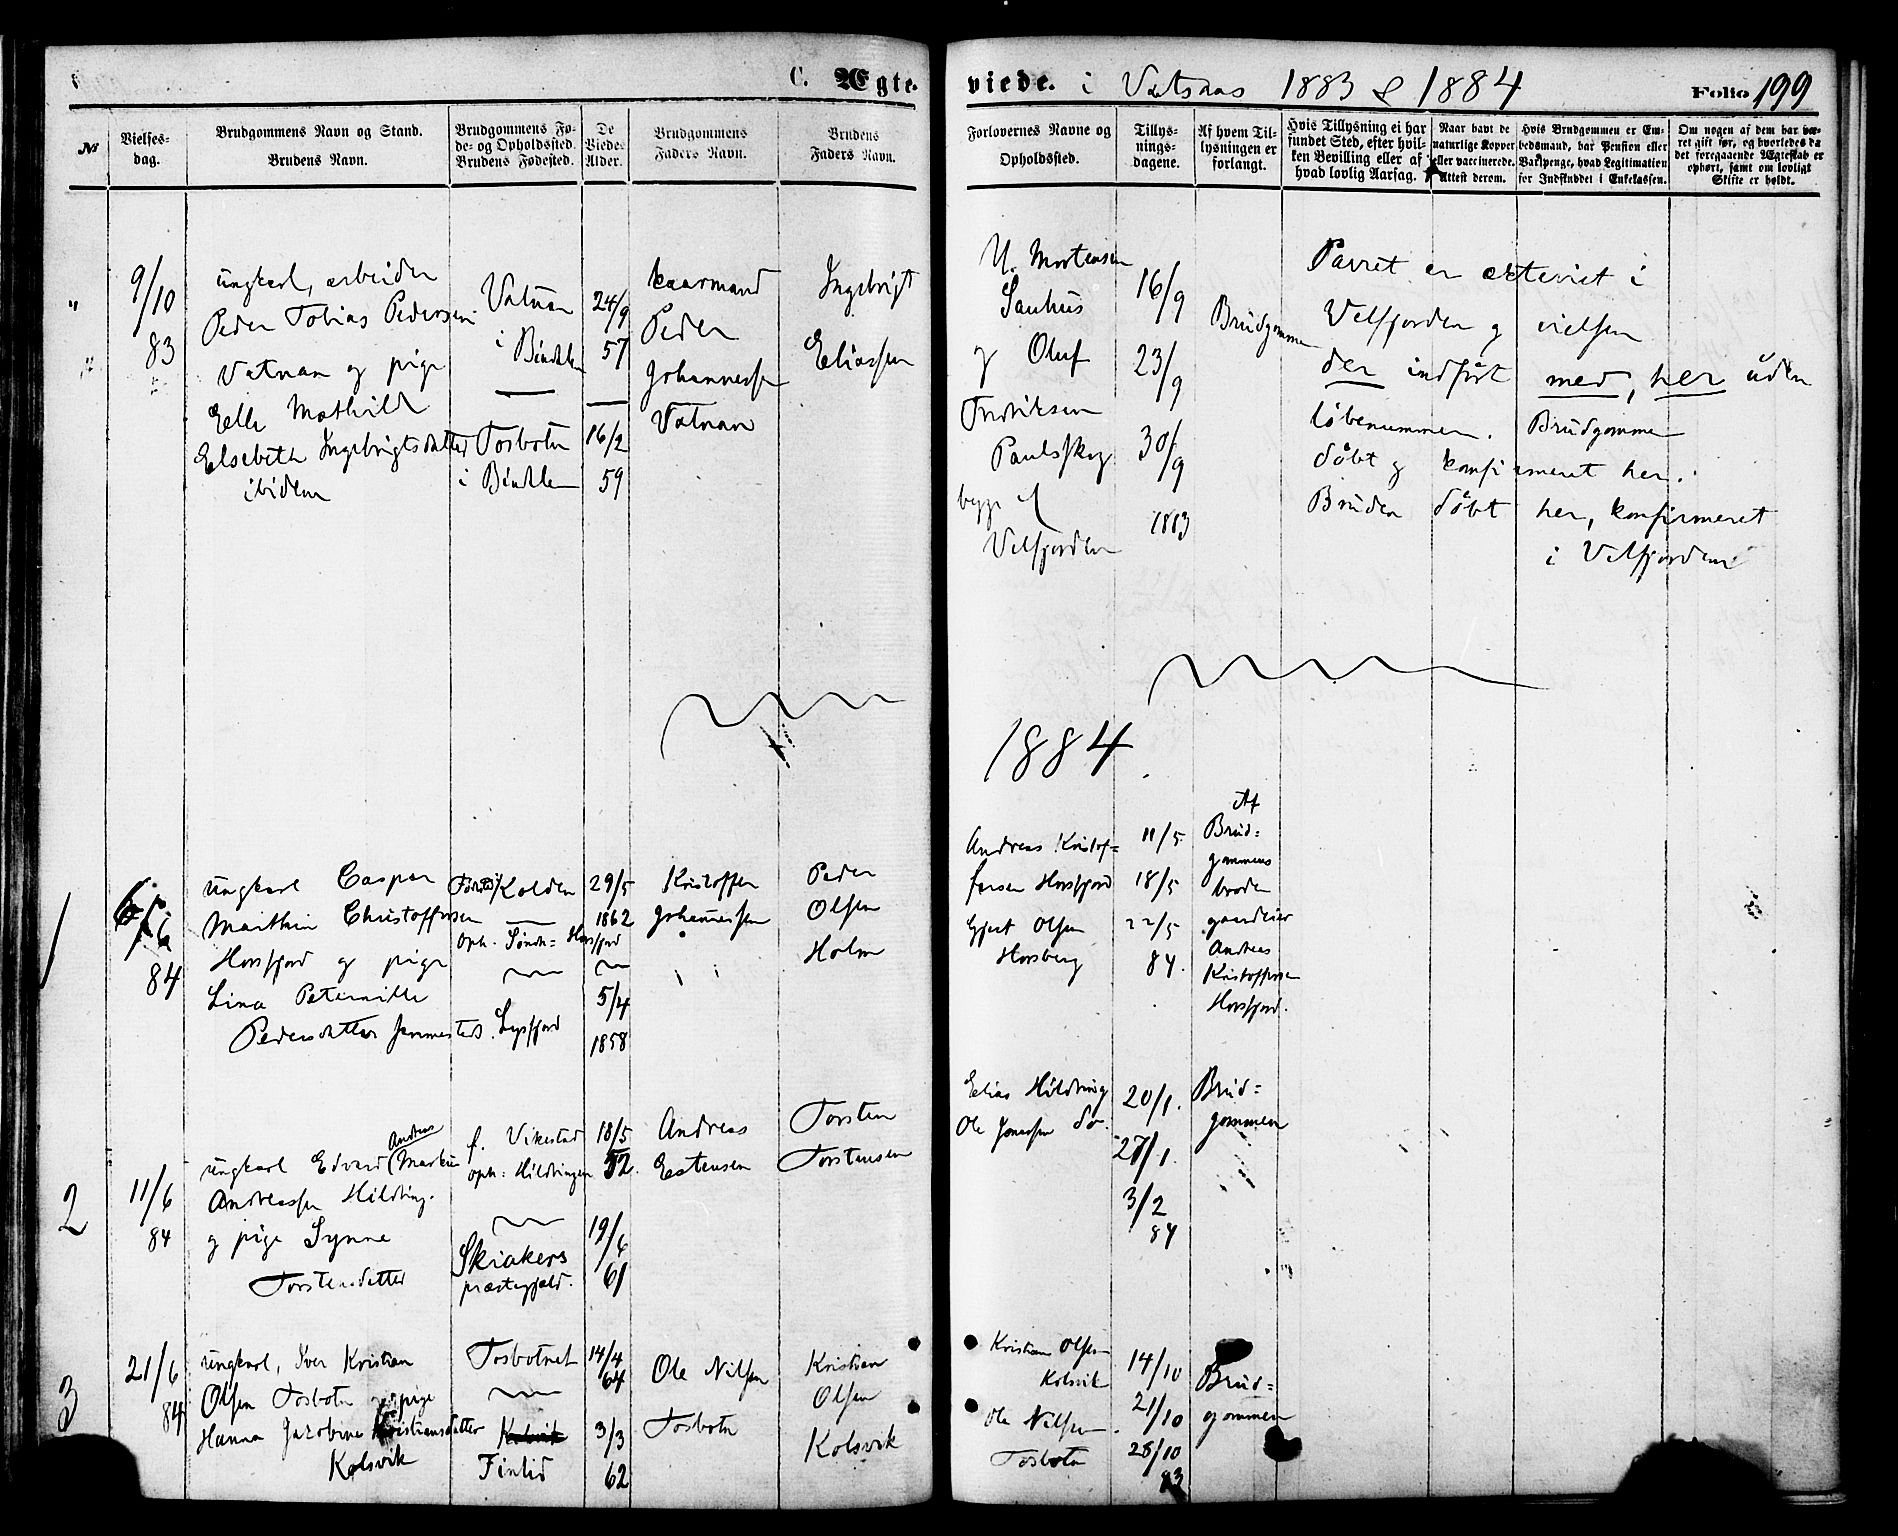 C. Ægte-
viede. i Vatsaas 1883 & 1884
Folio 199
№
Vielses-
dag.
Brudgommens Navn og Stand.
Brudens Navn.
Brudgommens Fø-
de- og Opholdssted.
Brudens Fødested.
De
Viedes
Alder.
Brudgommens
Faders Navn.
Brudens
Faders Navn.
Forlovernes Navne og
Opholdssted.
Tillys-
nings-
dagene.
Af hvem Til-
lysningen er
forlangt.
Hvis Tillysning ei har
fundet Sted, efter hvil-
ken Bevilling eller af
hvad lovlig Aarsag.
Naar havt de
naturlige Kopper
eller vaccinerede.
Attest derom.
Hvis Brudgommen er Em-
bedsmand, har Pension eller
Vartpenge, hvad Legitimation
for Indskuddet i Enkekassen.
Om nogen af dem har væ-
ret gift før, og hvorledes da
det foregaaende Ægteskab er
ophørt, samt om lovligt
Skifte er holdt.
"
9/10
83
ungkarl, arbeider
Peder Tobias Pedersen
Vatnan og pige
Elle Mathilde
Elsebeth Ingebrigtsdatter
ibidem
Vatnan
i Bindalen
Tosbotn
i Bindalen
24/9
57
16/2
59
kaarmand
Peder
Johannessen
Vatnan
Ingebrigt
Eliassen
Mortensen
Sauhus
og Oluf
Fredriksen
Paulsskog
begge af
Velfjorden
16/9
23/9
30/9
1883
Brudgommen
Parret er ekteviet i
Velfjorden og vielsen
der indført med, her uden
løbenummer. Brudgommen
døbt og konfirmeret her.
Bruden døbt her, konfirmeret
i Velfjorden
1884
1
6/6
84
ungkarl Caspar
Marthin Christoffersen
Horsfjord og pige
Lina Peternille
Pedersdatter
Kolden
Oph. Søndr= Horsfjord
29/5
1862
5/4
1858
Kristoffer
Johannessen
Peder
Olsen
Holm
Andreas Kristof=
fersen Horsfjord
Olsen
Horsberg
11/5
18/5
22/5
84.
Af
Brud=
gommens
broder
gaardeier
Andreas
Kristoffersen
Horsfjord.
2
11/6
84
Andreas
ungkarl Edvard (Markus
Andreassen Hildring.
og pige Synne
Torstensdatter
f. Vikestad
oph: Hildringen
Skiakers
præstegjæld.
18/5
52.
19/6
61
Andreas
Estensen
Torsten
Torstensen
Elias Hildring
Ole Jonassen do.
20/1.
27/1.
3/2
84
Brud=
gommen
3
21/6
84
ungkarl, Iver Kristian
Olsen Tosbotn og pige
Hanna Jacobine Kristiansdatter
Kolsvik
Tosbotnet
Kolsvik
14/4
64
3/3
62
Ole Nilsen
Tosbotn
Kristian
Olsen
Kolsvik
Kristian Olsen
Kolsvik
Ole Nilsen
Tosbotn
14/10
21/10
28/10
83
Brud=
gommen